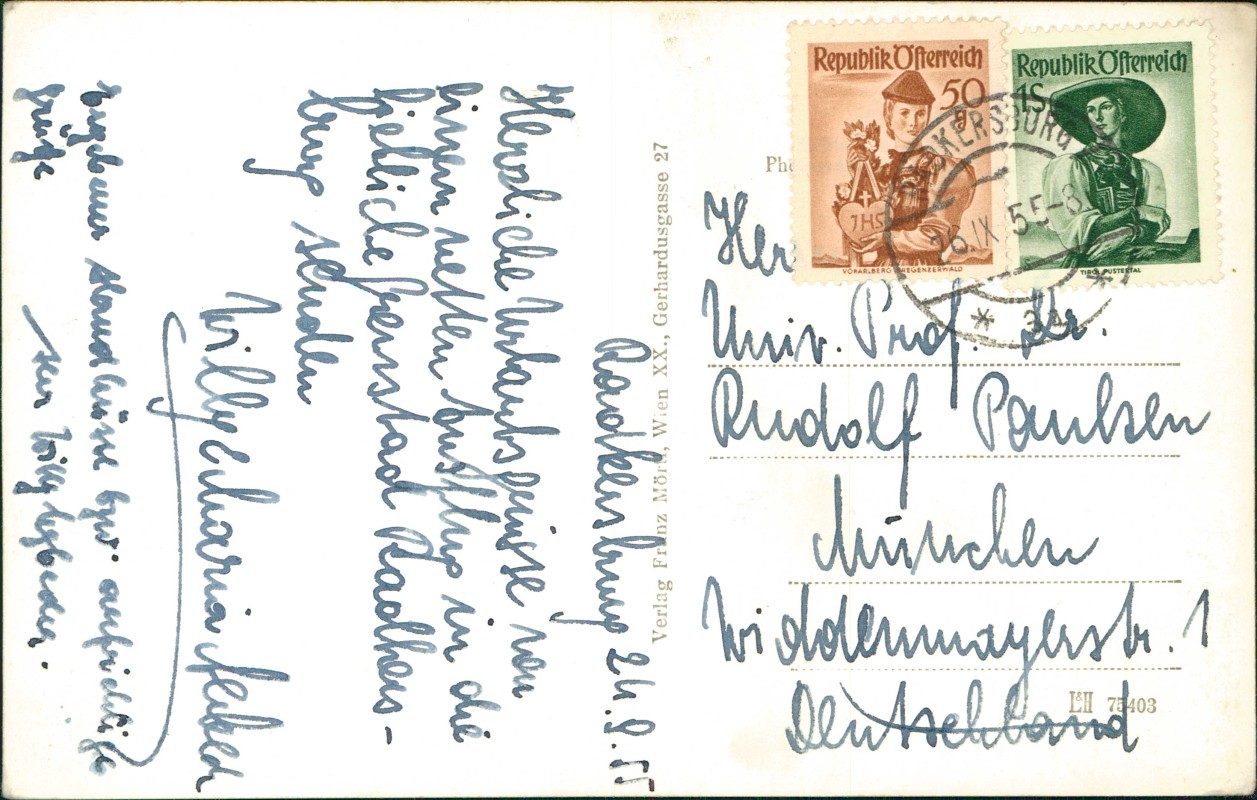 Radkersburg 24.9.55
Herzliche Urlaubsgrüsse von
einem netten Ausflug in die
liebliche Grenzstadt Radkers-
burg senden
Willy
Ergebenen Handkuss bzw. aufrichtige
Grüsse
Ihr Willy
Verlag Franz Mörd, Wien XX., Gerhardusgasse 27
Republik Österreich
50 g
JHS
VORARLBERG BREGENZERWALD
Republik Österreich
1S
TIROL PUSTERTAL
RADKERSBURG
26.IX.55-8
* 3a *
Herr
Univ. Prof. Dr.
Rudolf Paulsen
München
Widdenmayerstr. 1
Deutschland
L&H 75403